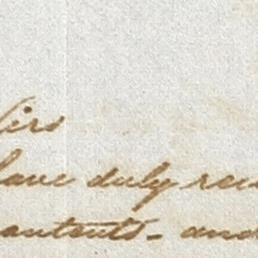 Sirs
have duly rec
contents - and